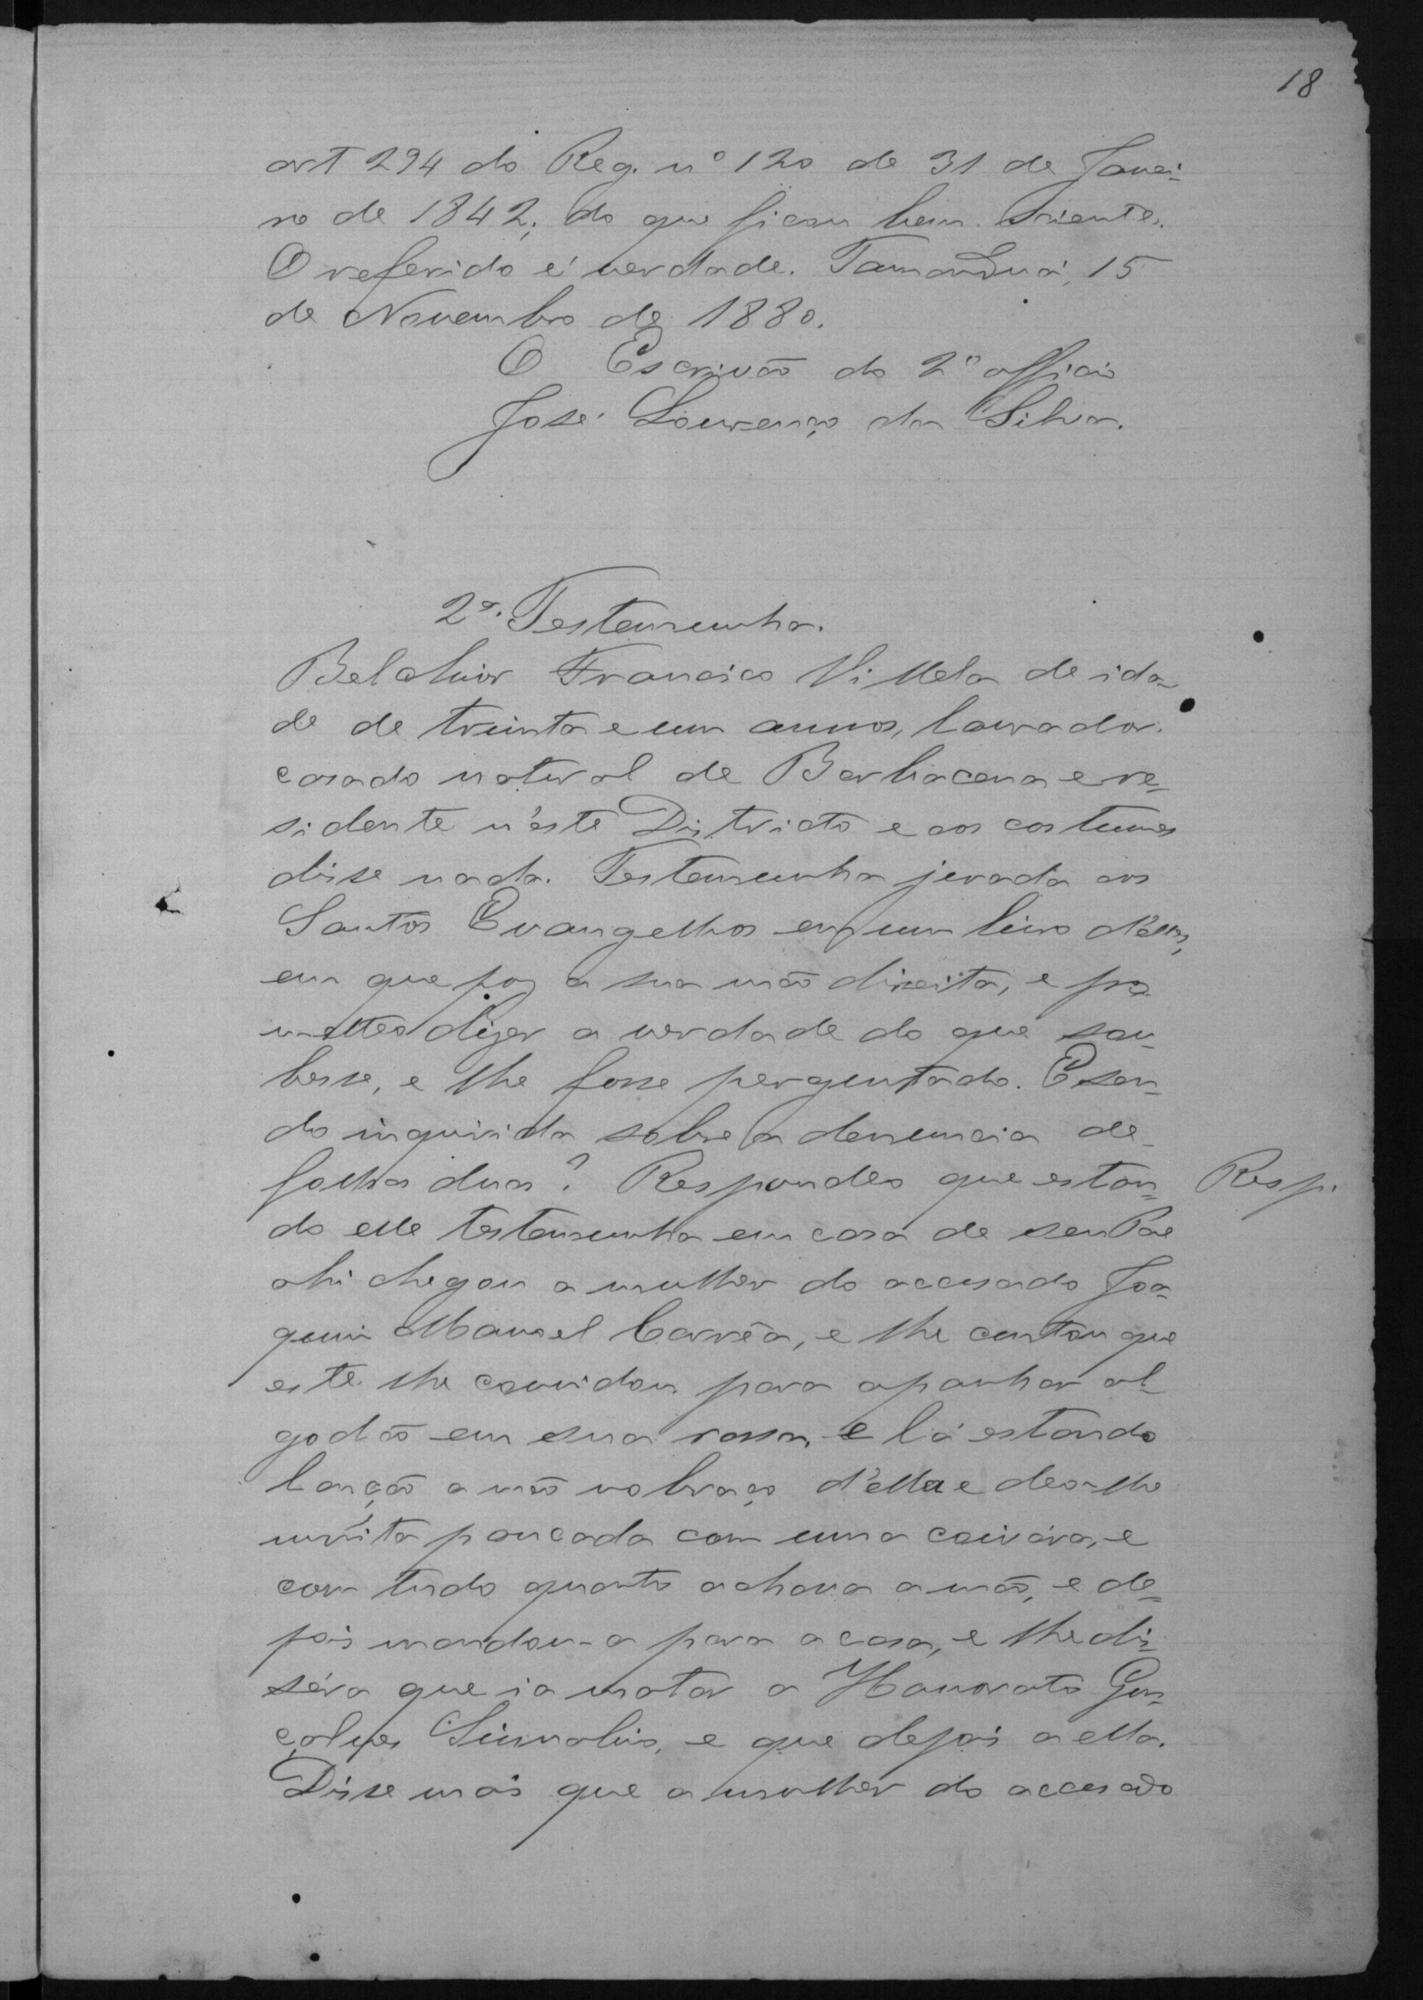 18
art 294 do Reg. nº 120 de 31 de Janei-
ro de 1842; do que ficou bem sciente.
O referido é verdade. Tamanduá, 15
de Novembro de 1880.
O Escrivão do 2º officio
José Lourenço da Silva.
2ª. Testemunha.
Belchior Francisco Villela de ida-
de de trinta e um annos, lavrador.
casado natural de Barbacena e re-
sidente n'este Districto e aos costumes
disse nada. Testemunha jurada aos
Santos Evangelhos em um livro d'elles,
em que poz a sua mão direita, e pro
metteo dizer a verdade do que sou-
besse, e lhe fosse perguntado. E sen-
do inquirida sobre a denuncia de
folhas duas? Respondeo que estan- Resp.
do elle testemunha em casa de seu Pae
ahi chegou a mulher do accusado Joa-
quim Manoel Corrêa, e lhe contou que
este lhe convidou para apanhar al-
godão em sua rossa, e lá estando
lanção a mão no braço d'ella e deo-lhe
muita pancada com uma coivára, e
com tudo quanto achava a mão, e de-
pois mandou-a para a casa, e lhe di-
séra que ia matar a Honorato Gon-
çalves e que depois a ella.
Disse mais que a mulher do accusado